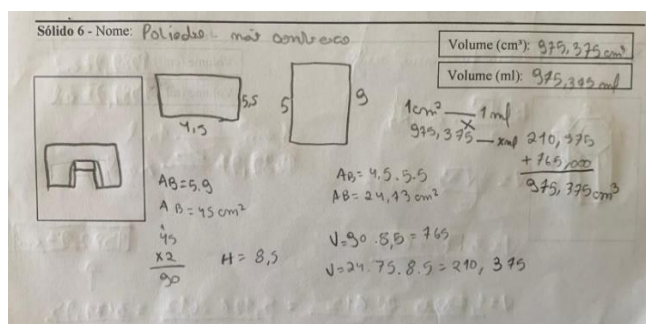 Sólido 6 - Nome: Poliedro - não conheço
Volume (cm³): 975,375 cm³
Volume (ml): 975,375 ml
5,5
4,5
5
9
1cm³ — 1 ml
X
975,375 — x ml
210,375
+ 765,000
975,375 cm³
AB = 5.9
AB = 45 cm²
45
x2
90
H = 8,5
AB = 4,5 . 5.5
AB = 24,73 cm²
V = 90 . 8,5 = 765
V = 24.75 . 8.5 = 210, 375